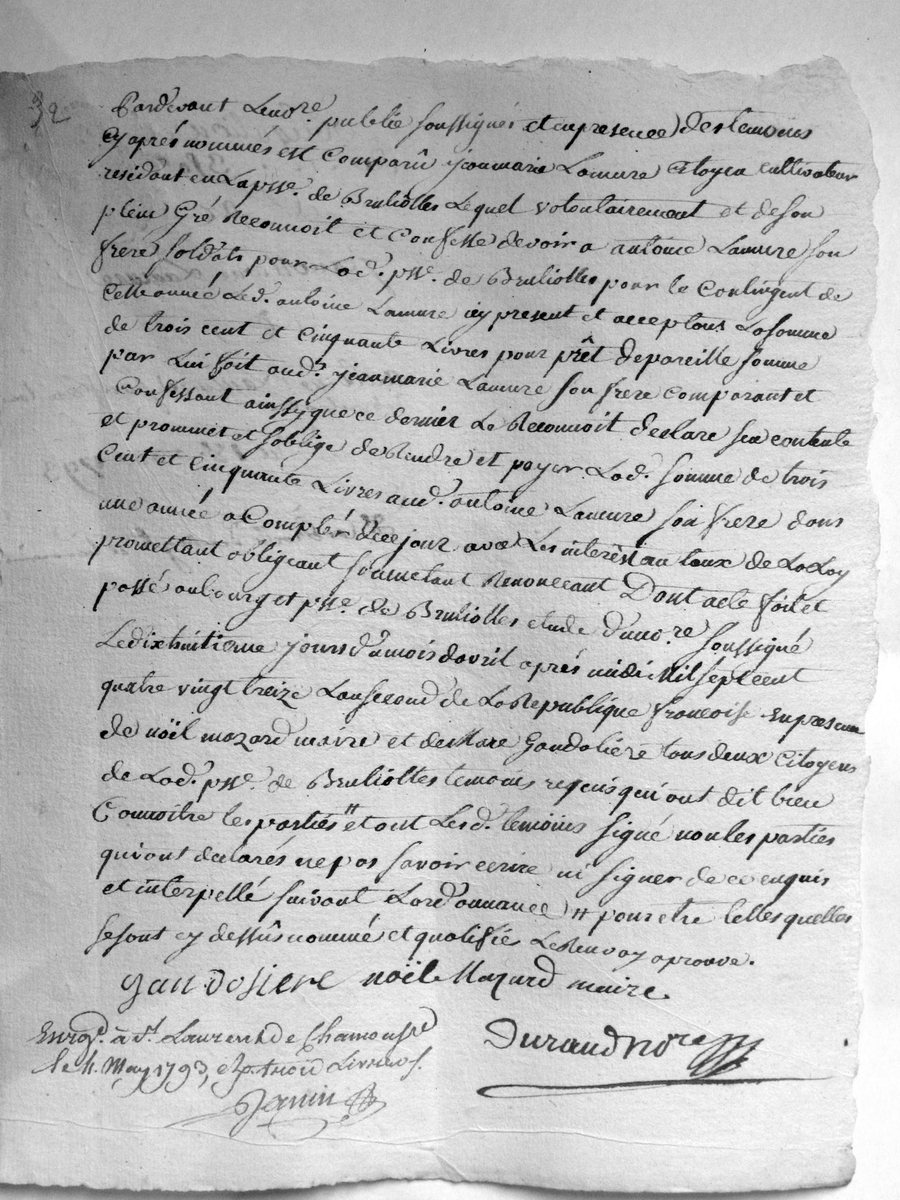 32
Pardevant Le no.re public soussignés et en presence des temoins
cy aprés nommés est Comparû jeanmarie Lamure Citoyen cultivateur
residant en La psse. de Brulliolles Lequel volontairement et de son
plein Gré Reconnoit et Confesse devoir a antoine Lamure son
frere soldats pour Lad. psse. de Brulliolles pour le Contingent de
Cette année Led. antoine Lamure icy present et acceptans La somme
de trois cent et Cinquante Livres pour prêt de pareille somme
par Lui fait aud. jeanmarie Lamure son frere Comparant et
Confessant ainssy que ce dernier Le Reconnoit declare sen contente
et prommet et soblige de Rendre et payer Lad. somme de trois
Cent et Cinquante Livres aud. antoine Lamure son frere dans
une année a Compter de ce jour avec Les interêst au taux de La Loy
promettant obligeant soumetant Renoncant Dont acte fait et
passé au bourg et psse. de Brulliolles etude d'uno.re soussigné
Le dix huitieme jours d'u mois d'avril aprés midi Mil sept cent
quatre vingt treize Lan second de La Republique francoise en presence
de noël mazard maire et de Gandoliere tous deux Citoyens
de Lad. psse. de Brulliolles temoins requis qui ont dit bien
Connoitre les parties # et ont Les d. temoins signé non les parties
qui ont declarés ne pas savoir ecrire ni signer de ce enquis
et interpellé suivant Lord'onnance # pour etre telles quelles
se sont cy dessûs nommé et qualifié Le Renvoy aprouvé.
noël Mazard maire
Durand no.re
Enrgt. à st. Laurent de Chamousset
le May 1793,
Janin